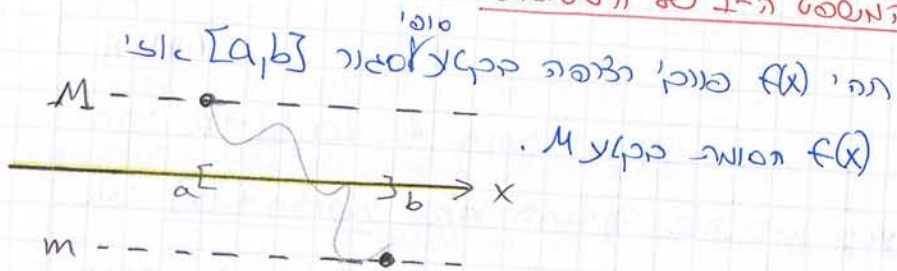 תהי f(x) פונק' רציפה בקטע סופי וסגור [a,b] אזי
f(x) חסומה בקטע M.
M
a [ ] b x
m